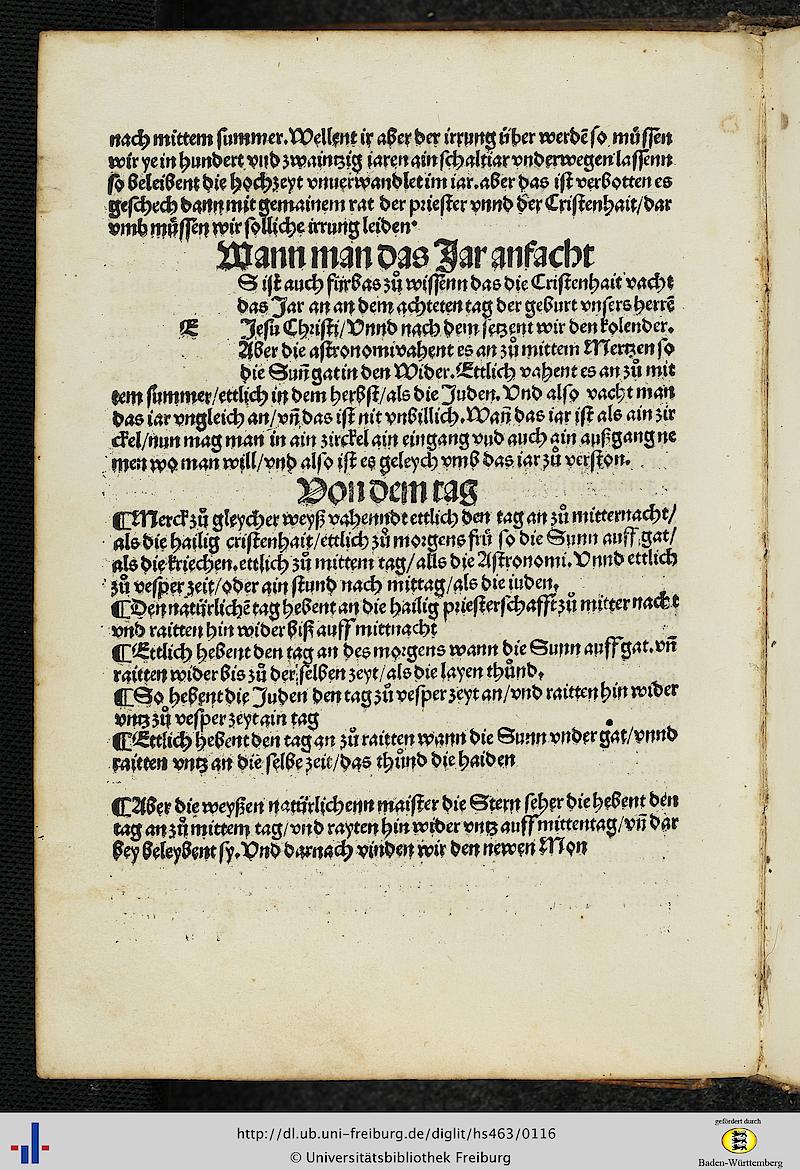 nach mittem summer. Wellent ir aber der irrung über werdē so müssen
wir ye in hundert vnd zwaintzig iaren ain schaltiar vnderwegen lassenn
so beleibent die hochzeyt vnuerwandlet im iar. aber das ist verbotten es
geschech dann mit gemainem rat der priester vnnd der Cristenhait/dar
vmb müssen wir solliche irrung leiden.
Wann man das Jar anfacht
S ist auch fürbas zů wissenn das die Cristenhait vacht
das Jar an an dem achteten tag der geburt vnsers herrē
E Jesu Christi/Vnnd nach dem setzent wir den kolender.
Aber die astronomi vahent es an zů mittem Mertzen so
die Suñ gat in den Wider. Ettlich vahent es an zů mit
tem summer/ettlich in dem herbst/als die Juden. Vnd also vacht man
das iar vngleich an/vñ das ist nit vnbillich. Wañ das iar ist als ain zir
ckel/nun mag man in ain zirckel ain eingang vnd auch ain außgang ne
men wo man will/vnd also ist es geleych vmb das iar zů verston.
Von dem tag
¶Merck zů gleycher weyß vahenndt ettlich den tag an zů mitternacht/
als die hailig cristenhait/ettlich zů morgens frü so die Sunn auff gat/
als die kriechen. ettlich zů mittem tag/alls die Astronomi. Vnnd ettlich
zů vesper zeit/oder ain stund nach mittag/als die iuden.
¶Den natürlichē tag hebent an die hailig priesterschafft zů mitter nacht
vnd raitten hin wider biß auff mittnacht
¶Ettlich hebent den tag an des morgens wann die Sunn auff gat. vñ
raitten wider bis zů der selben zeyt/als die layen thůnd.
¶So hebent die Juden den tag zů vesper zeyt an/vnd raitten hin wider
vntz zů vesper zeyt ain tag
¶Ettlich hebent den tag an zů raitten wann die Sunn vnder gat/vnnd
raitten vntz an die selbe zeit/das thůnd die haiden
¶Aber die weyßen natürlichenn maister die Stern seher die hebent den
tag an zů mittem tag/vnd rayten hin wider vntz auff mittentag/vñ dar
bey beleybent sy. Vnd darnach vinden wir den newen Mon
http://dl.ub.uni-freiburg.de/diglit/hs463/0116
© Universitätsbibliothek Freiburg
gefördert durch
Baden-Württemberg